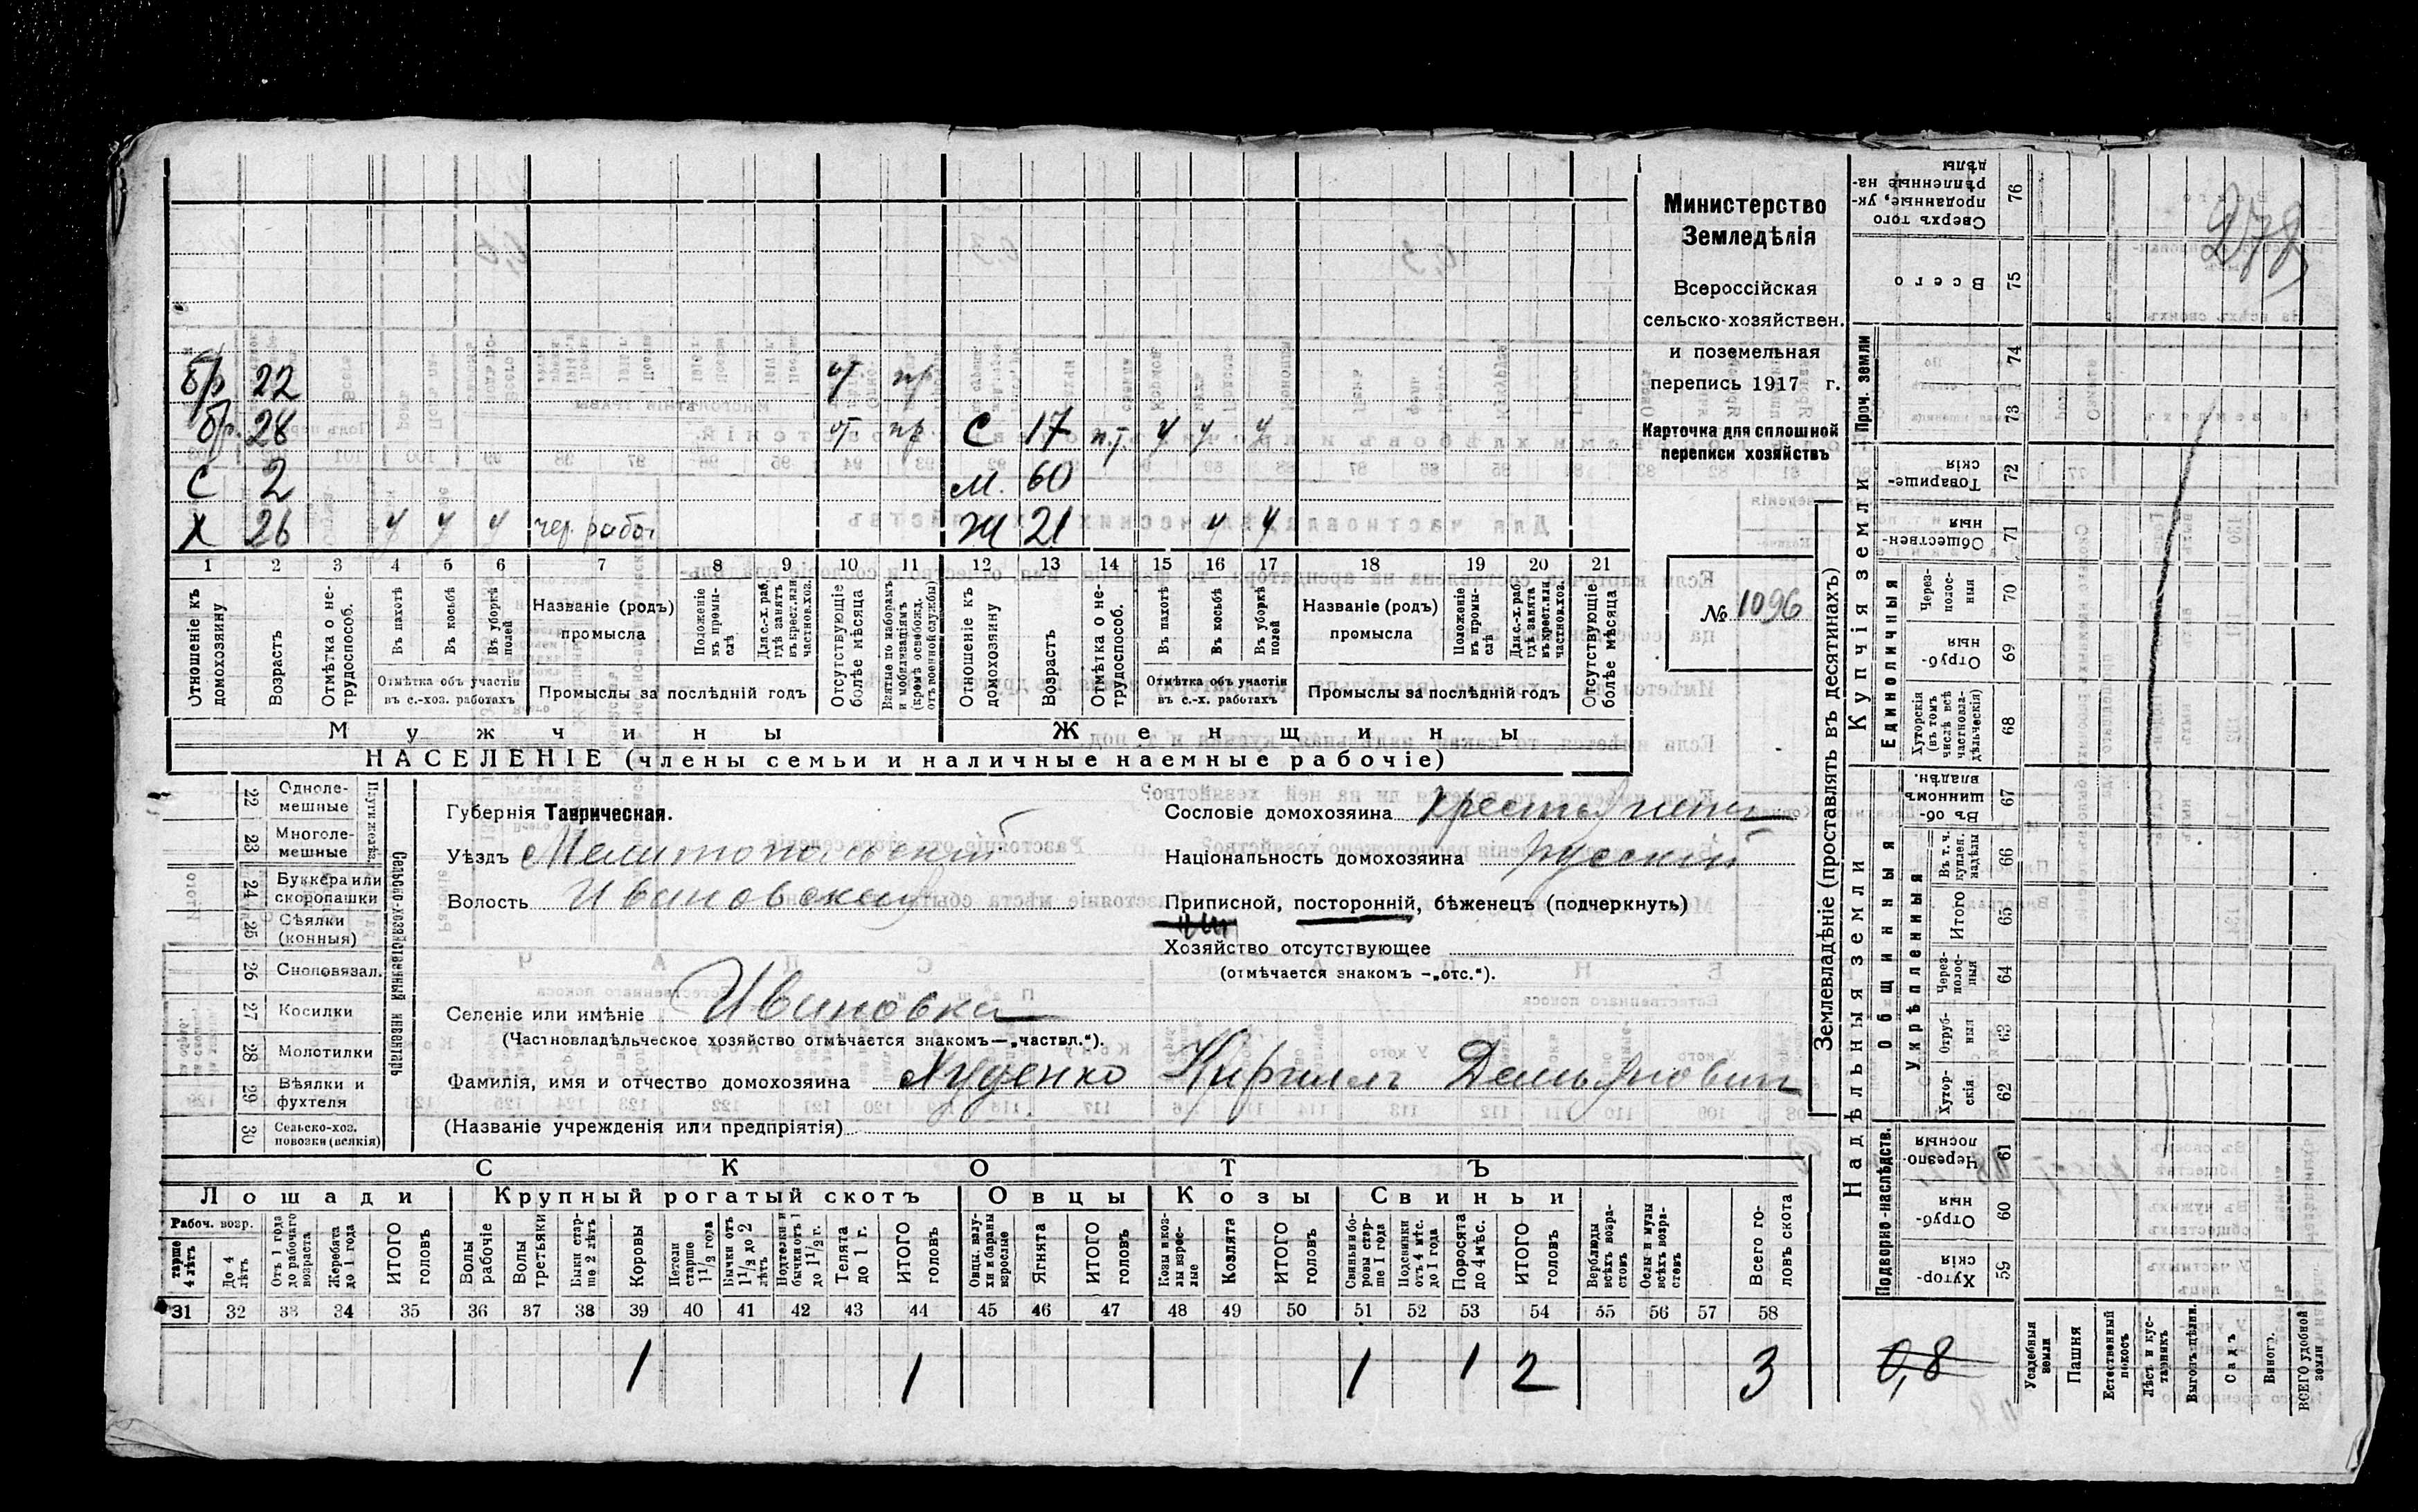 Министерство
Земледѣлія
Всероссійская
сельско-хозяйствен.
и поземельная
перепись 1917 г.
Карточка для сплошной
переписи хозяйствъ
№ 1096
278
бр 22 от пр
бр. 28 от пр. С 17 п.т. у у у
С 2 м. 60
Х 26 у у у чер. рабо Ж 21 у у
1 2 3 4 5 6 7 8 9 10 11 12 13 14 15 16 17 18 19 20 21
Отношеніе къ домохозяину
Возрастъ
Отмѣтка о не-трудоспособ.
Въ пахотѣ
Въ косьбѣ
Въ уборкѣ полей
Отмѣтка объ участіи въ с.-хоз. работахъ
Названіе (родъ) промысла
Положеніе въ промы-слѣ
Для с.-х. раб. гдѣ занятъ въ крест. или частнов. хоз.
Промыслы за послѣдній годъ
Отсутствующіе болѣе мѣсяца
Взятые по наборамъ и мобилизаціямъ (кромѣ освобожд. отъ военной службы)
Отношеніе къ домохозяину
Возрастъ
Отмѣтка о не-трудоспособ.
Въ пахотѣ
Въ косьбѣ
Въ уборкѣ полей
Отмѣтка объ участіи въ с.-х. работахъ
Названіе (родъ) промысла
Положеніе въ промы-слѣ
Для с.-х. раб. гдѣ занята въ крест. или частнов. хоз.
Промыслы за послѣдній годъ
Отсутствующіе болѣе мѣсяца
Мужчины Женщины
НАСЕЛЕНІЕ (члены семьи и наличные наемные рабочіе)
22 Одноле-мешные
23 Многоле-мешные
24 Буккера или скоропашки
25 Сѣялки (конныя)
26 Сноповязал.
27 Косилки
28 Молотилки
29 Вѣялки и фухтеля
30 Сельско-хоз. повозки (всякія)
Сельско-хозяйственный инвентарь
Губернія Таврическая.
Уѣздъ Мелитопольскій
Волость Ивановская
Селеніе или имѣніе Ивановка
(Частновладѣльческое хозяйство отмѣчается знакомъ—„частвл.“).
Фамилія, имя и отчество домохозяина Луценко Кириллъ Демьянович
(Названіе учрежденія или предпріятія)
Сословіе домохозяина крестьянинъ
Національность домохозяина русскій
Приписной, посторонній, бѣженецъ (подчеркнуть)
Хозяйство отсутствующее
(отмѣчается знакомъ —„отс.“).
СКОТЪ
Лошади Крупный рогатый скотъ Овцы Козы Свиньи
Рабоч. возр.
старше 4 лѣтъ
До 4 лѣтъ
Отъ 1 года до рабочаго возраста
Жеребята до 1 года
ИТОГО головъ
Волы рабочіе
Волы третьяки
Быки стар-ше 2 лѣтъ
Коровы
Нетели старше 1 1/2 года
Бычки отъ 1 1/2 до 2 лѣтъ
Подтелки и бычки отъ 1 до 1 1/2 г.
Телята до 1 г.
ИТОГО головъ
Овцы, валу-хи и бараны взрослые
Ягнята
ИТОГО головъ
Козы и коз-лы взрос-лые
Козлята
ИТОГО головъ
Свиньи и бо-ровы стар-ше 1 года
Подсвинки отъ 4 мѣс. до 1 года
Поросята до 4 мѣс.
ИТОГО головъ
Верблюды всѣхъ возра-стовъ
Ослы и мулы всѣхъ возра-стовъ
Всего го-ловъ скота
31 32 33 34 35 36 37 38 39 40 41 42 43 44 45 46 47 48 49 50 51 52 53 54 55 56 57 58
1 1 1 1 2 3
Землевладѣніе (проставлять въ десятинахъ)
Надѣльныя земли Купчія земли Проч. земли
Подворно-наслѣдств.
Общинныя
Укрѣпленныя
Единоличныя
Хутор-скія 59
Отруб-ныя 60
Черезпо-лосныя 61
Хутор-скія 62
Отруб-ныя 63
Через-полос-ныя 64
Итого 65
Въ т. ч. куплен. надѣлы 66
Въ об-щинномъ владѣн. 67
Хуторскія (въ томъ числѣ всѣ частновла-дѣльческія) 68
Отруб-ныя 69
Через-полос-ныя 70
Обществен-ныя 71
Товарище-скія 72
73
74
Всего 75
Сверхъ того проданные, ук-рѣпленные на-дѣлы 76
0,8
Усадебныя земли
Пашня
Естественный покосъ
Лѣсъ и кус-тарникъ
Выгонъ-цѣлин.
Садъ
Виногр.
ВСЕГО удобной земли